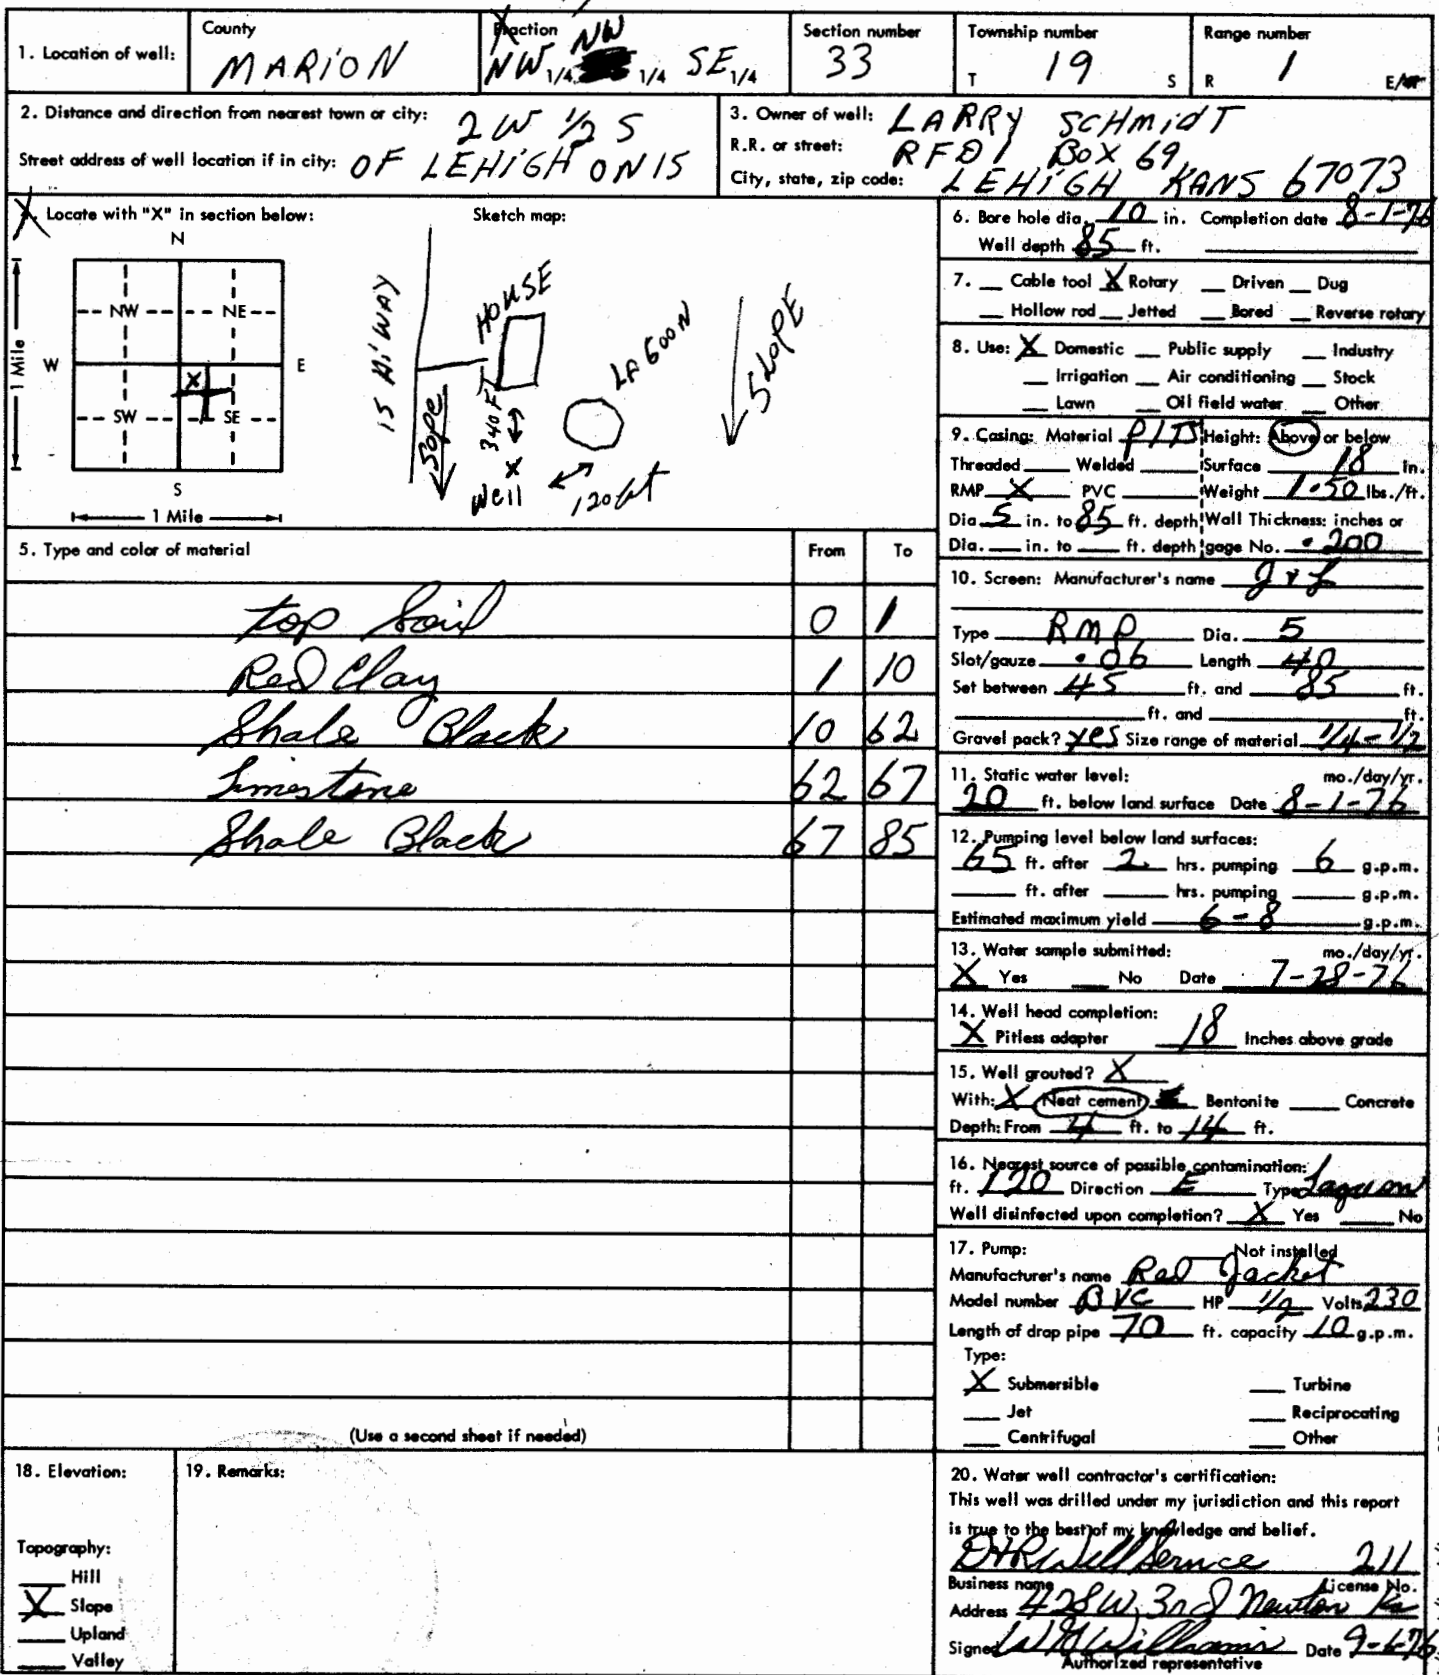 County Fraction Section number Township number Range number
1. Location of well: MARION NW NW 1/4 1/4 SE 1/4 33 T 19 S R 1 E/W
2. Distance and direction from nearest town or city: 2W 1/2 S
Street address of well location if in city: OF LEHIGH ON 15
3. Owner of well: LARRY SCHMIDT
R.R. or street: RFD 1 BOX 69
City, state, zip code: LEHIGH KANS 67073
4. Locate with "X" in section below: Sketch map:
N
NW NE
W E
X
SW SE
S
1 Mile
1 Mile
15 HiWAY
HOUSE
LAGOON
SLOPE
Slope
340 F
X
Well
120 ft
5. Type and color of material From To
top Soil 0 1
Red Clay 1 10
Shale Black 10 62
Limestone 62 67
Shale Black 67 85
(Use a second sheet if needed)
6. Bore hole dia. 10 in. Completion date 8-1-76
Well depth 85 ft.
7. Cable tool X Rotary Driven Dug
Hollow rod Jetted Bored Reverse rotary
8. Use: X Domestic Public supply Industry
Irrigation Air conditioning Stock
Lawn Oil field water Other
9. Casing: Material Height: Above or below
Threaded Welded Surface 18 in.
RMP X PVC Weight 1.50 lbs./ft.
Dia. 5 in. to 85 ft. depth Wall Thickness: inches or
Dia. in. to ft. depth gage No. .200
10. Screen: Manufacturer's name
Type RMP Dia. 5
Slot/gauze .06 Length 40
Set between 45 ft. and 85 ft.
ft. and ft.
Gravel pack? yes Size range of material 1/4-1/2
11. Static water level: mo./day/yr.
20 ft. below land surface Date 8-1-76
12. Pumping level below land surfaces:
65 ft. after 2 hrs. pumping 6 g.p.m.
ft. after hrs. pumping g.p.m.
Estimated maximum yield 6-8 g.p.m.
13. Water sample submitted: mo./day/yr.
X Yes No Date 7-28-76
14. Well head completion:
X Pitless adapter 18 Inches above grade
15. Well grouted? X
With: X Neat cement Bentonite Concrete
Depth: From 4 ft. to 14 ft.
16. Nearest source of possible contamination:
ft. 120 Direction E Type Laguon
Well disinfected upon completion? X Yes No
17. Pump: Not installed
Manufacturer's name Red Jacket
Model number BVC HP 1/2 Volts 230
Length of drop pipe 70 ft. capacity 10 g.p.m.
Type:
X Submersible Turbine
Jet Reciprocating
Centrifugal Other
18. Elevation:
Topography:
Hill
X Slope
Upland
Valley
19. Remarks:
20. Water well contractor's certification:
This well was drilled under my jurisdiction and this report
is true to the best of my knowledge and belief.
Well Service 211
Business name License No.
Address 428 W. 3rd Newton Ks
Signed Williams Date 9-6-76
Authorized representative